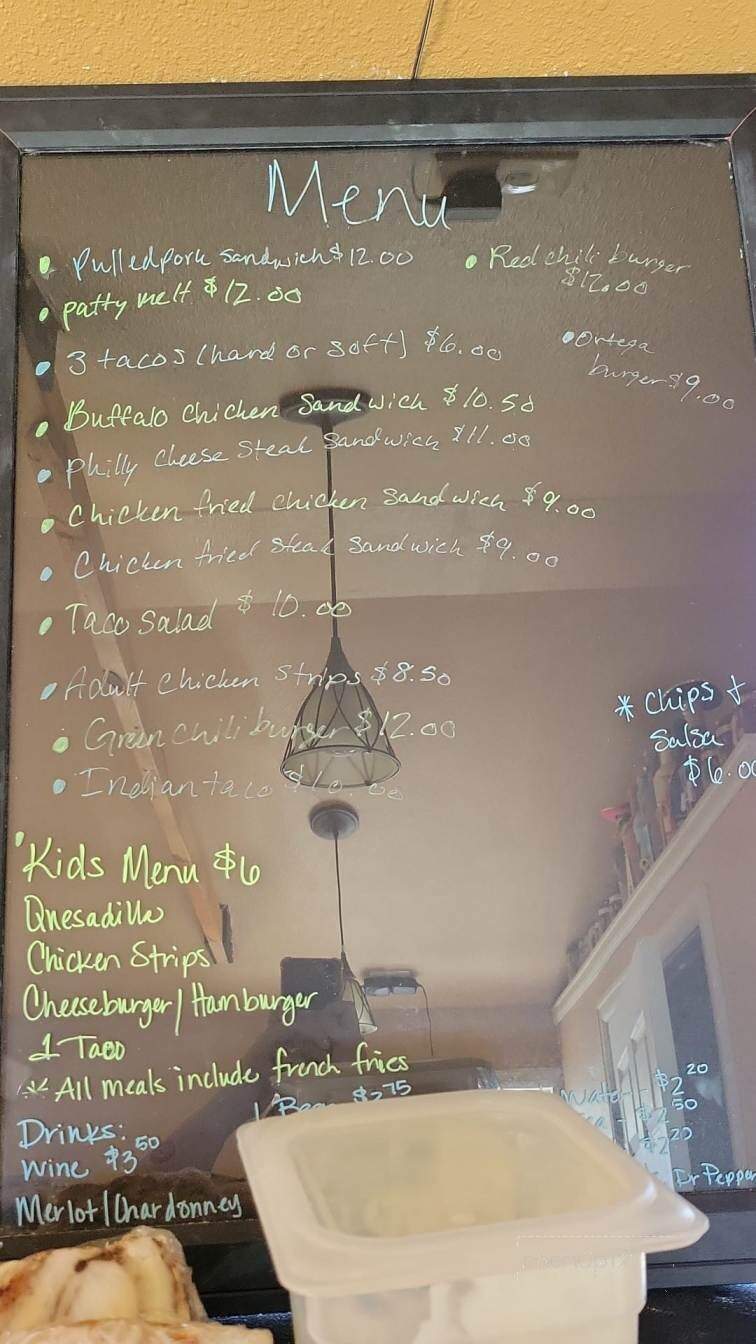 Menu
• Pulled pork sandwich $12.00
• Red chili burger
$12.00
• patty melt $12.00
• 3 tacos (hard or soft) $6.00
• Ortega
burger $9.00
• Buffalo chicken Sandwich $10.50
• Philly Cheese Steak Sandwich $11.00
• Chicken fried chicken Sandwich $9.00
• Chicken fried Steak Sandwich $9.00
• Taco Salad $10.00
• Adult Chicken Strips $8.50
* Chips &
Salsa
$6.00
• Green chili burger $12.00
• Indian taco $10.00
• Kids Menu $6
Quesadilla
Chicken Strips
Cheeseburger/Hamburger
1 Taco
* All meals include french fries
Drinks:
Wine $3.50
Merlot/Chardonney
$2.75
Water - $2.20
$2.50
$2.20
Dr Pepper
menupix